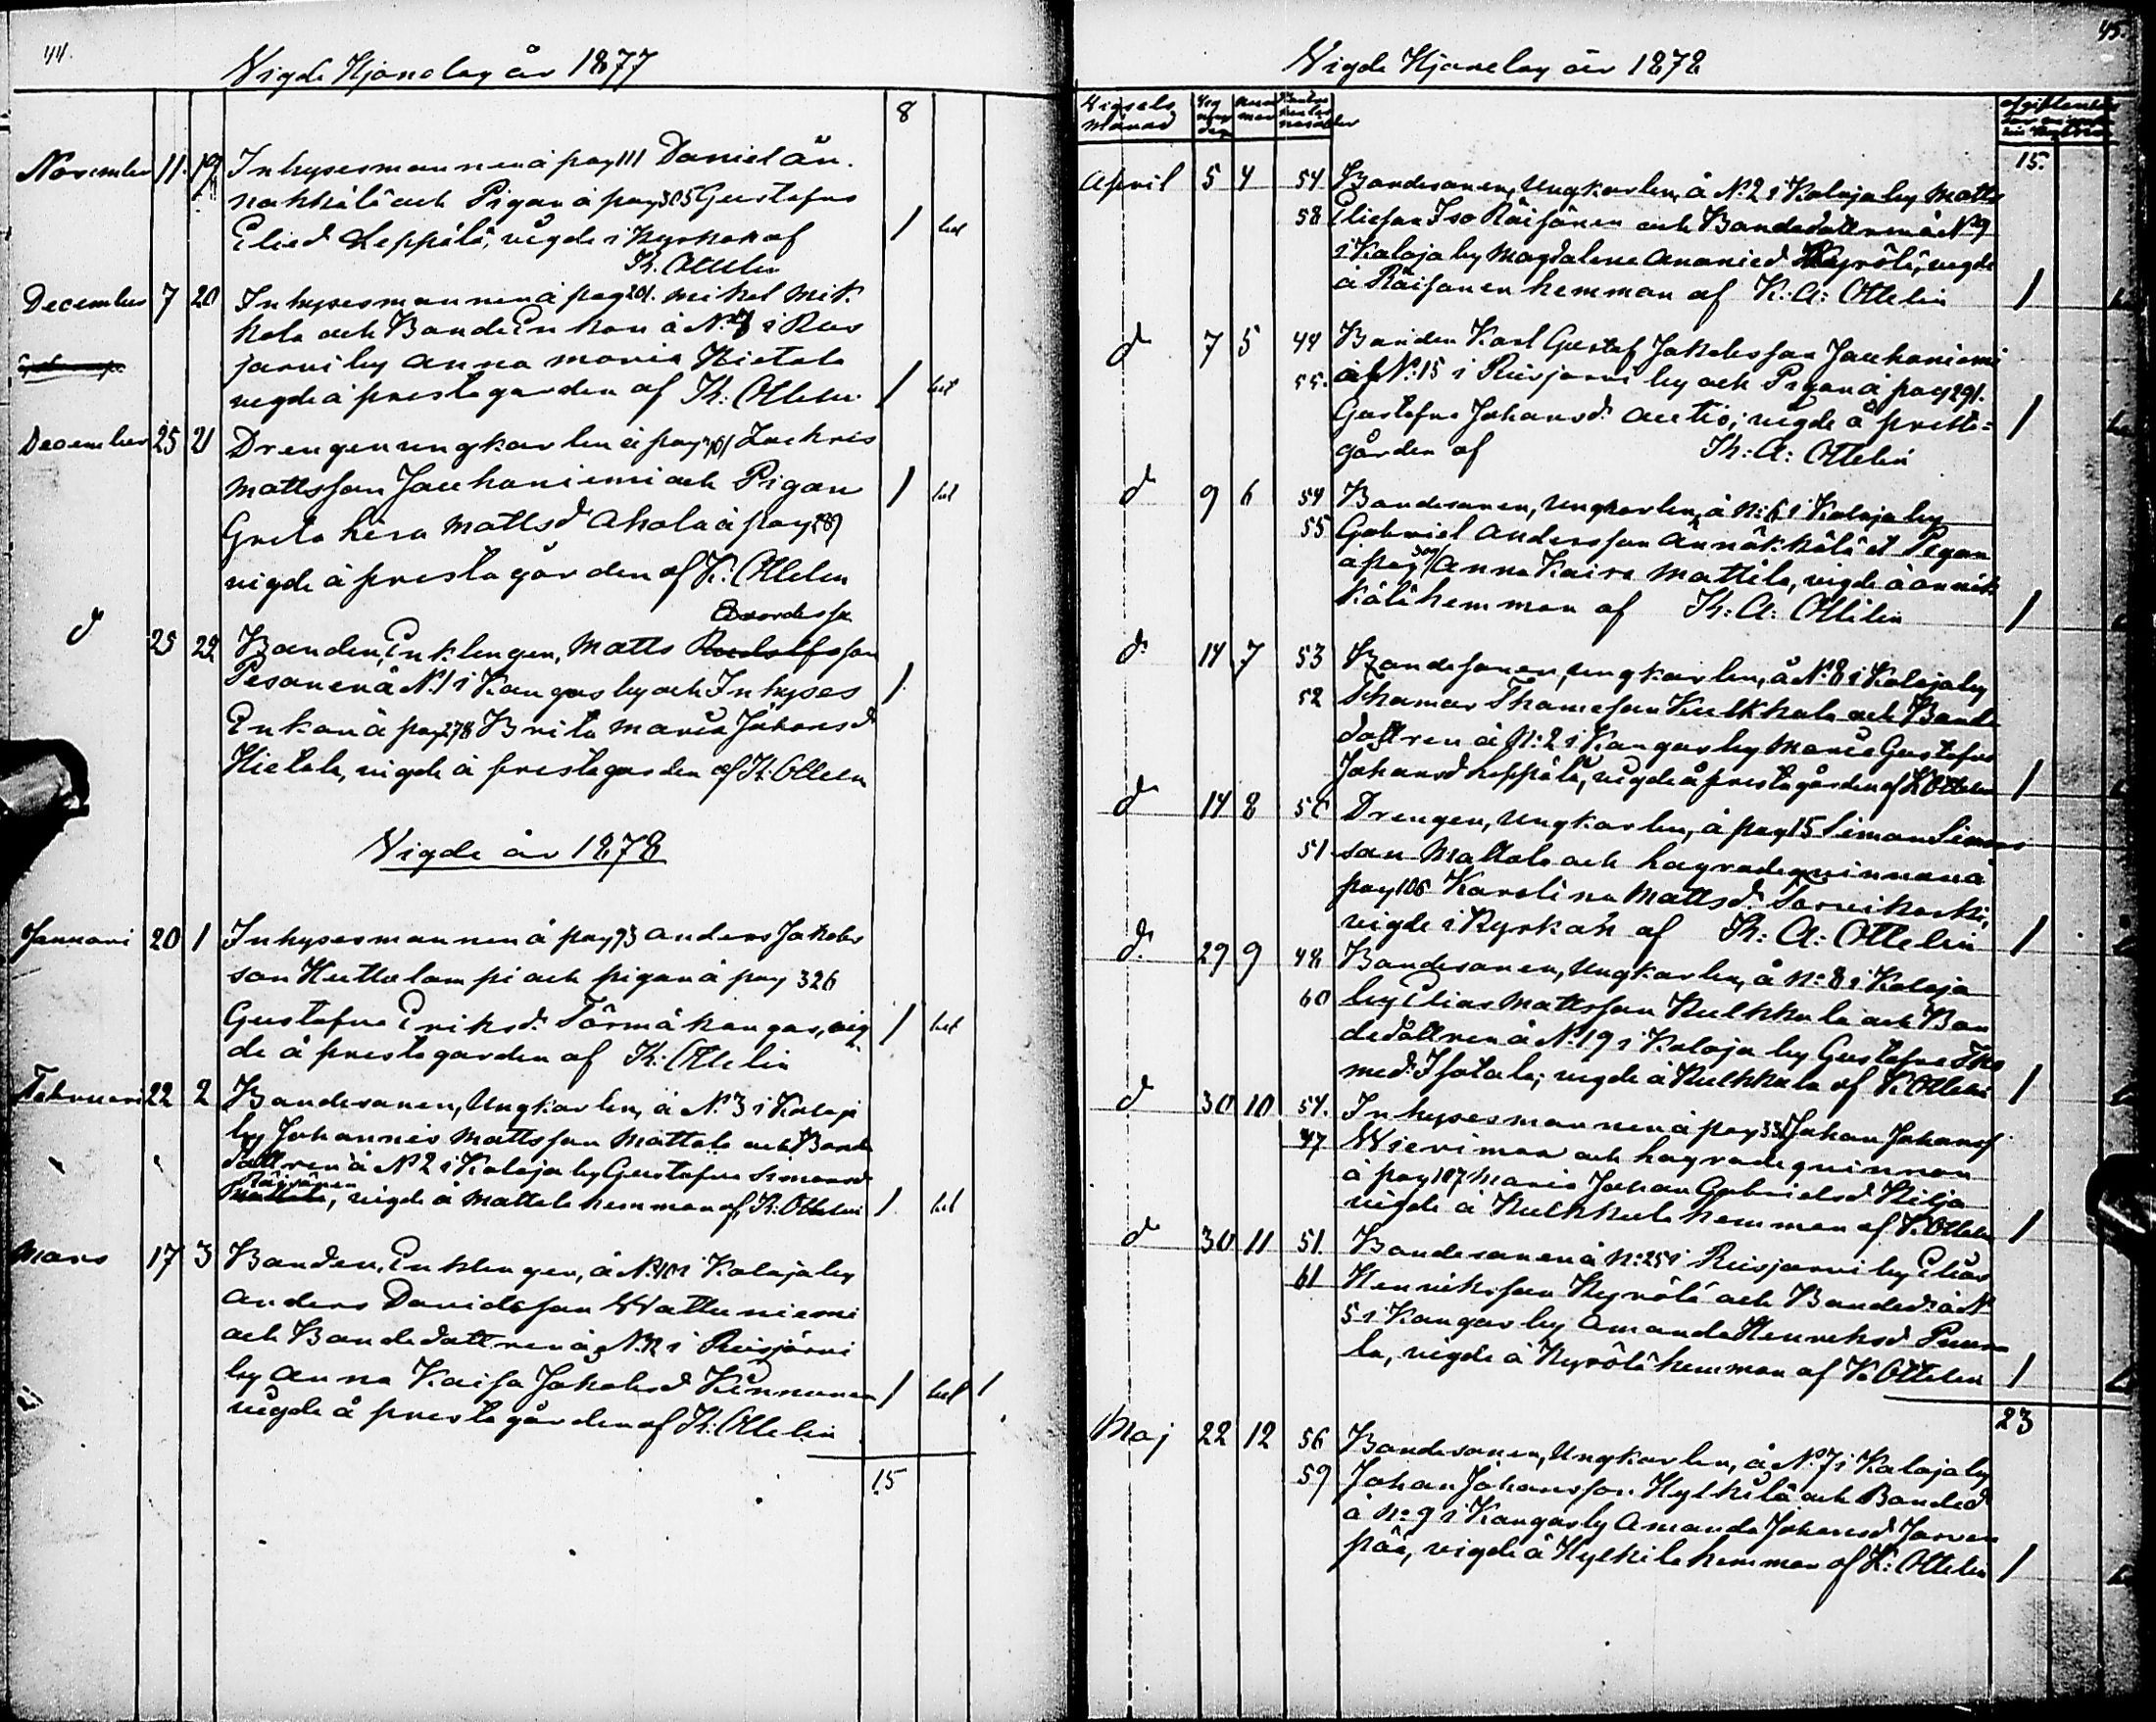 44.
Vigde Hjonelag år 1877
8
November 11. 19 Inhysesmannen å pag 111 Daniel Än.
näkkälä och Pigan å pag 305 Gustafva
Eliæd Leppälä, vigde i Kyrkan af 1
K. Ottelin
December 7 20 Inhysesmannen å pag 201. Mikel Mik.
kola och Bonde Enkan å N:
jarvi by Anna Maria Hietala
vigde å prestegarden af K: Ottelin 1
December 25 21 Drengen ungkarlen å pag Zachris
Mattsson Jauhoniemi och Pigan 1
Greta Lisa Mattsd Ahola å pag 287
vigde å prestagården af K: Ottelin
d 25 22 Bonden, Enklingen, Matts
Pesonen å N:1 i Kangas by och Inhyses 1
Enkan å pag 278 Brita Maria Johansd
Hietala, vigde å prestegarden af K: Ottelin
Vigde år 1878
Januari 20 1 Inhysesmannen å pag 73 Anders Jakobs
son Huttulampi och pigan å pag 326
Gustafva Eriksd. Törmäkangas, vig 1
de å prestegarden af K: Ottelin
Februari 22 2 Bondesonen, Ungkarlen, å N:3 i Kalaja
by Johannes Mattsson Mattala och Bonde
dottren å N 2 i Kalaja by Gustafva Simonsd
Räisänen
Mattala, vigde å Mattala hemman af K: Ottelin 1
Mars 17 3 Bonden, Enklingen, å N: i Kalaja by
Anders Davidsson Wattuniemi
och Bondedottren å N: i Reisjärvi
by Anna Kaisa Jakobsd Kinnunen 1 1
vigde å prestegården af K: Ottelin
15
45.
Vigde Hjonelag år 1878
Vigsels månad
15.
April 5 4 54 Bondesonen, Ungkarlen, å N:2 i Kalaja by Matts
58 Eliesson Iso Räisänen och Bondedottren å N:9
i Kalaja by Magdalena Ananiæd Kyrölä, vigde
å Räisänen hemman af K: A: Ottelin 1
d 7 5 44 Bonden Karl Gustaf Jakobsson Jauhoniemi
55. å N:15 i Reisjärvi by och Pigan å pag 291.
Gustafva Johansd. Autio; vigde å preste= 1
gården af K: A: Ottelin
d 9 6 54 Bondesonen, Ungkarlen, å N:6 i Kalaja by
55 Gabriel AnderssonÄnnäkkälä et Pigan
å pag 309 Anna Kaisa Mattila, vigde å Ännäk
kälä hemman af K: A: Ottelin 1
d: 14 7 53 Bondesonen, ungkarlen, å N:8 i Kalaja by
52 Thomas Thomesson Kulkkala och Bonde
dottren å N:2 i Kangas by Maria Gustafva
Johansd Leppälä, vigde å prestegården af K Ottelin 1
d 14 8 Drengen, Ungkarlen, å pag 15 Simon Simons
51 son Mattala och Lagradequinnan å
pag 106 Karolina Mattsd. Torvikoski,
vigde i Kyrkan af K: A: Ottelin 1
d. 29 9 48 Bondesonen, Ungkarlen, å N:8 i Kalaja
60 by Elias Mattsson Kulkkula och Bon
dedottren å N:19 i Kalaja by Gustafva Tho
mæd. Isotalo; vigde å Kulkkula af K. Ottelin 1
d 30 10 54. Inhysesmannen å pag 331 Johan Johansf
47 Wierimaa och Lagradequinnan
å pag 107 Maria Johan Gabrielsd Kilja
vigde å Kulkkula hemman af K. Ottelin 1
d 30 11 51. Bondesonen å N:25 i Reisjarvi by Elias
61 Henriksson Kyrölä och Bonded. å N
5 i Kangas by Amanda Henriksd Puura
la, vigde å Kyrölä hemman af K. Ottelin 1
23
Maj 22 12 56 Bondesonen, Ungkarlen, å N:7 i Kalaja by
59 Johan Johansson Hylkilä och Bonded
å N:9 i Kangas by Amanda Johansd Jarven
pää, vigde å Hylkilä hemman af K: Ottelin 1